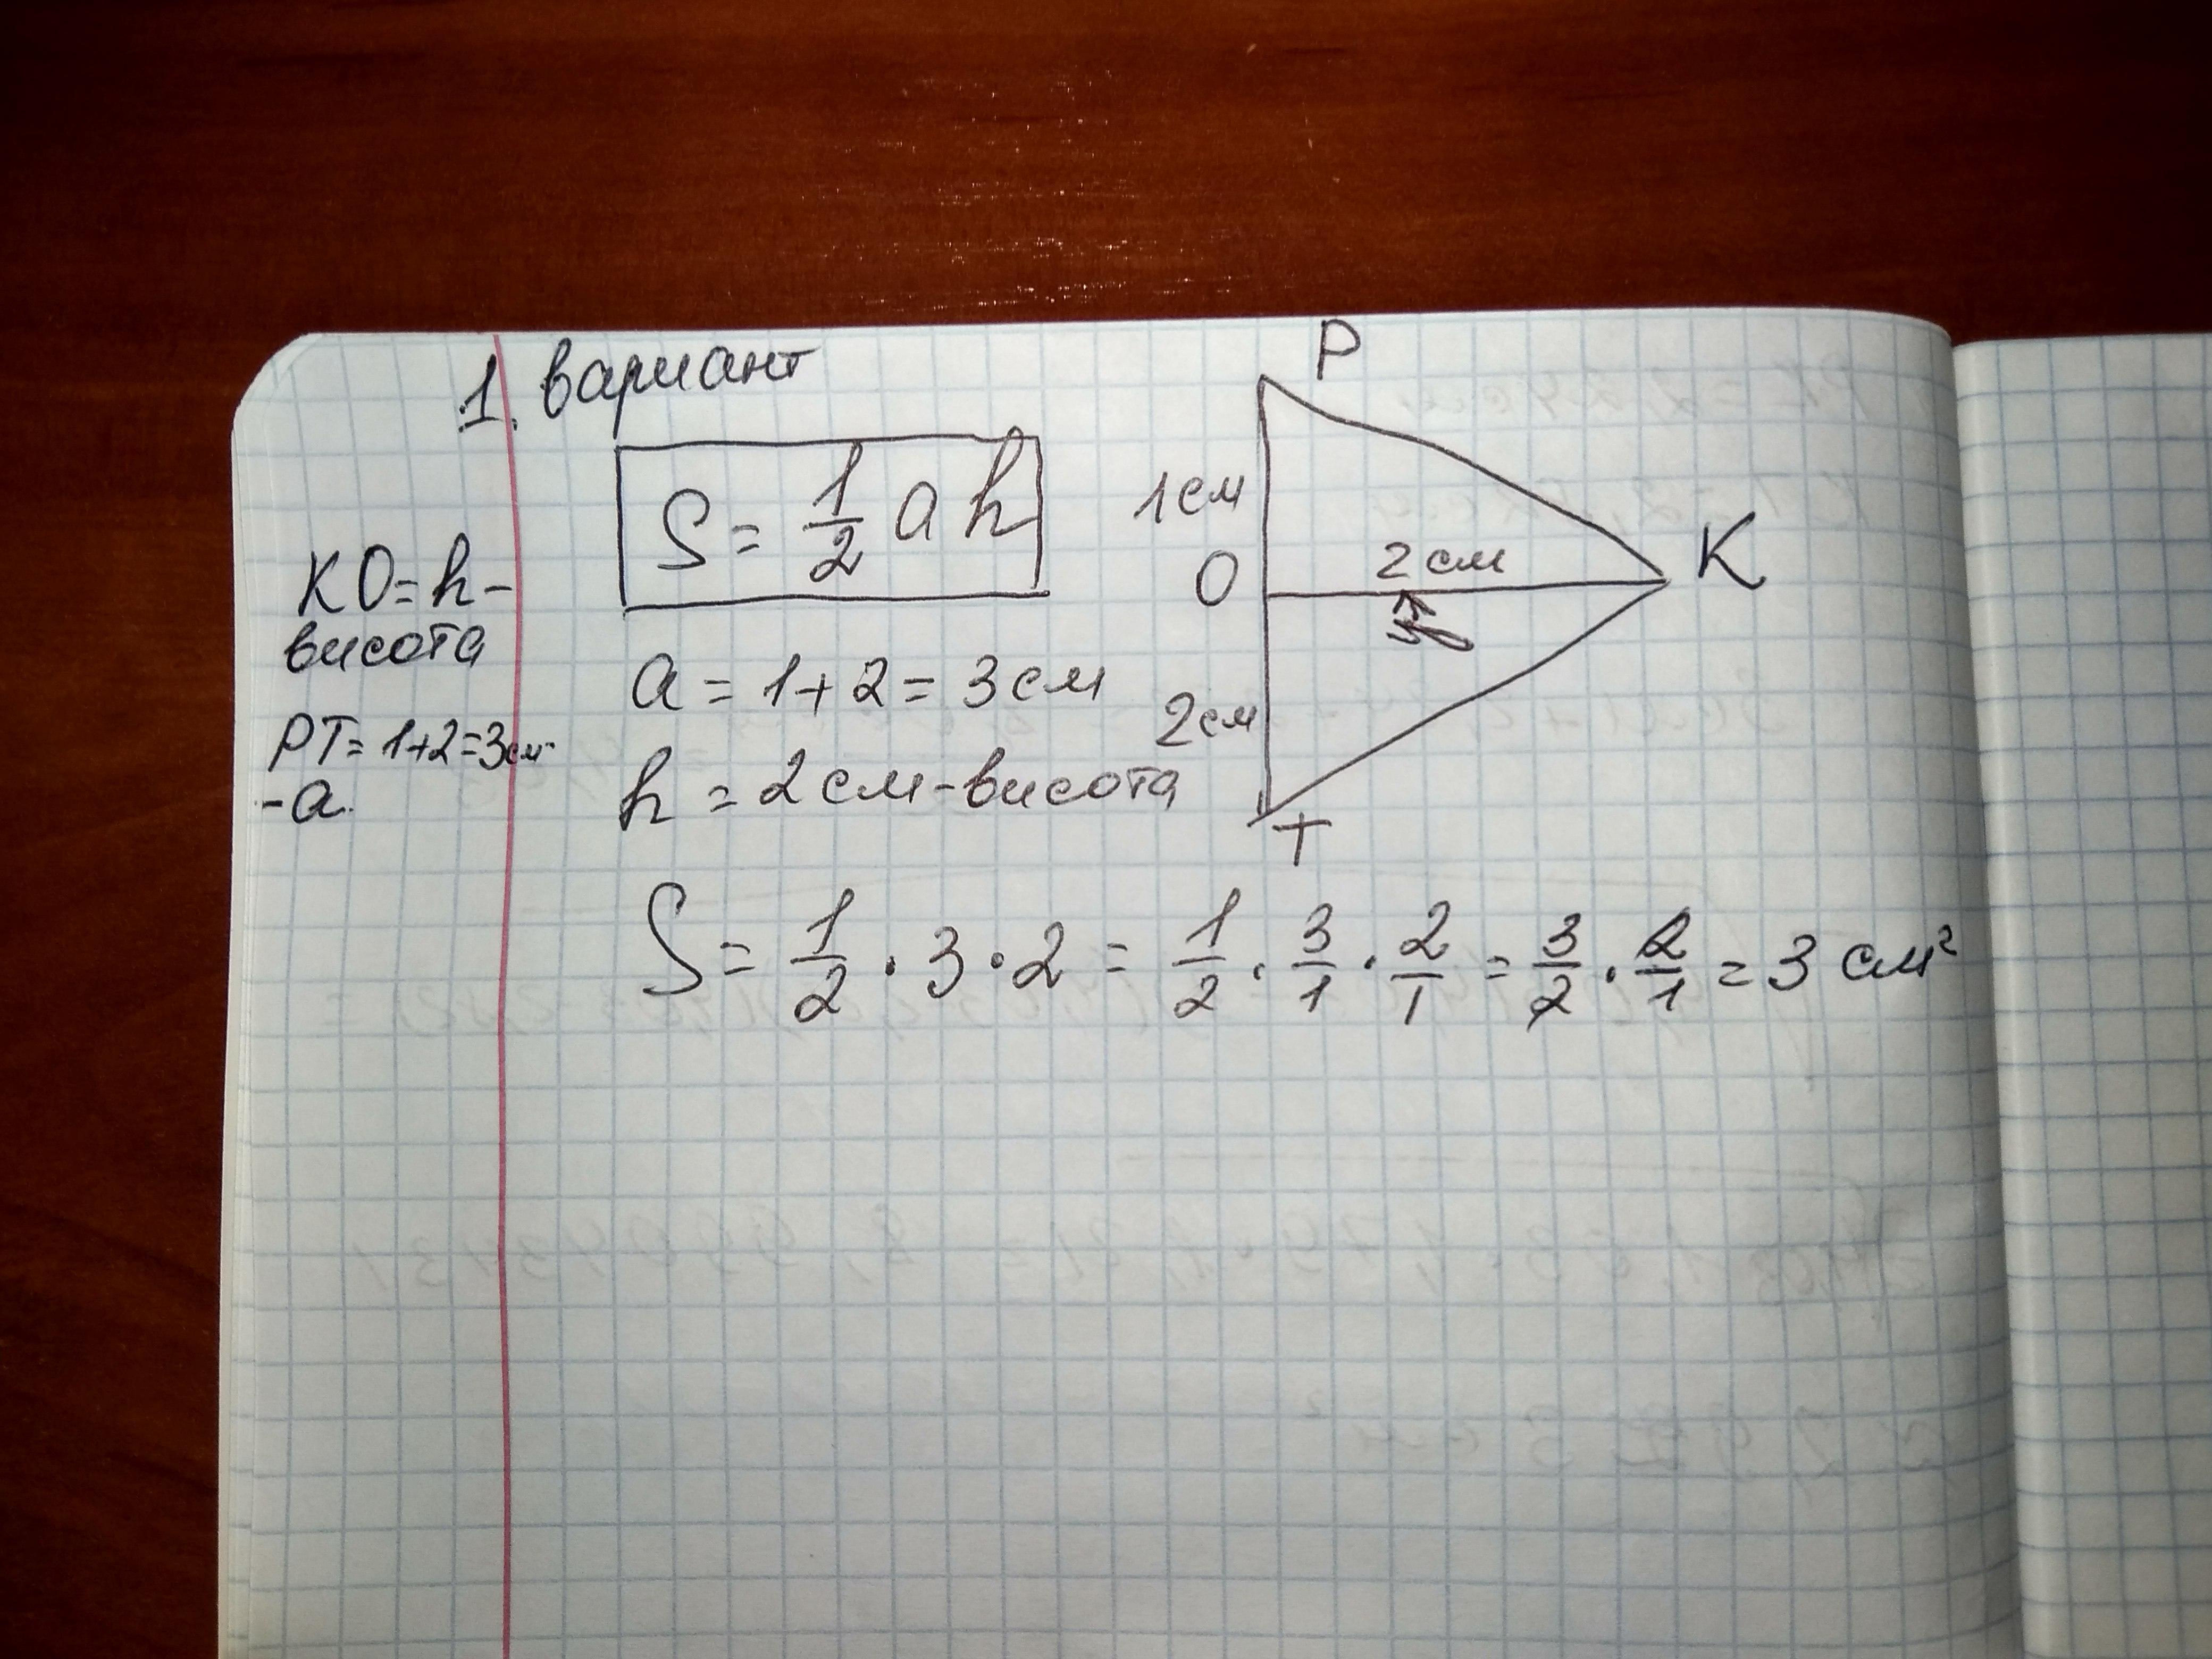 1. вариант
S = 1/2 a h
KO = h -
висота
PT = 1+2=3см
- a.
a = 1+2 = 3 см
h = 2 см - висота
P
1 см
O
2 см
K
2 см
T
S = 1/2 · 3 · 2 = 1/2 · 3/1 · 2/1 = 3/2 · 2/1 = 3 см²